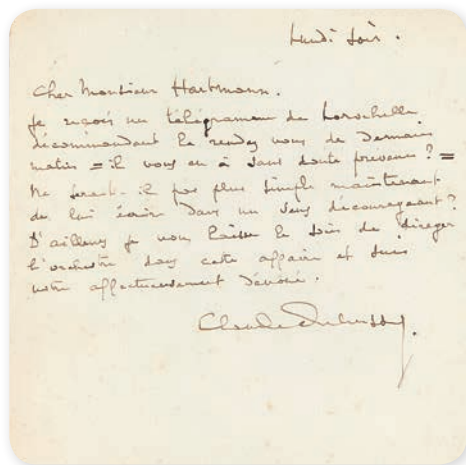 Lundi soir.
Cher Monsieur Hartmann.
Je reçois un télégramme de Larochelle
décommandant le rendez vous de demain
matin = il vous en à sans doute prévenu? =
Ne serait-il pas plus simple maintenant
de lui écrire dans un sens décourageant?
D'ailleurs je vous laisse le soin de diriger
l'orchestre dans cette affaire et suis
votre affectueusement dévoué.
Claude Debussy.